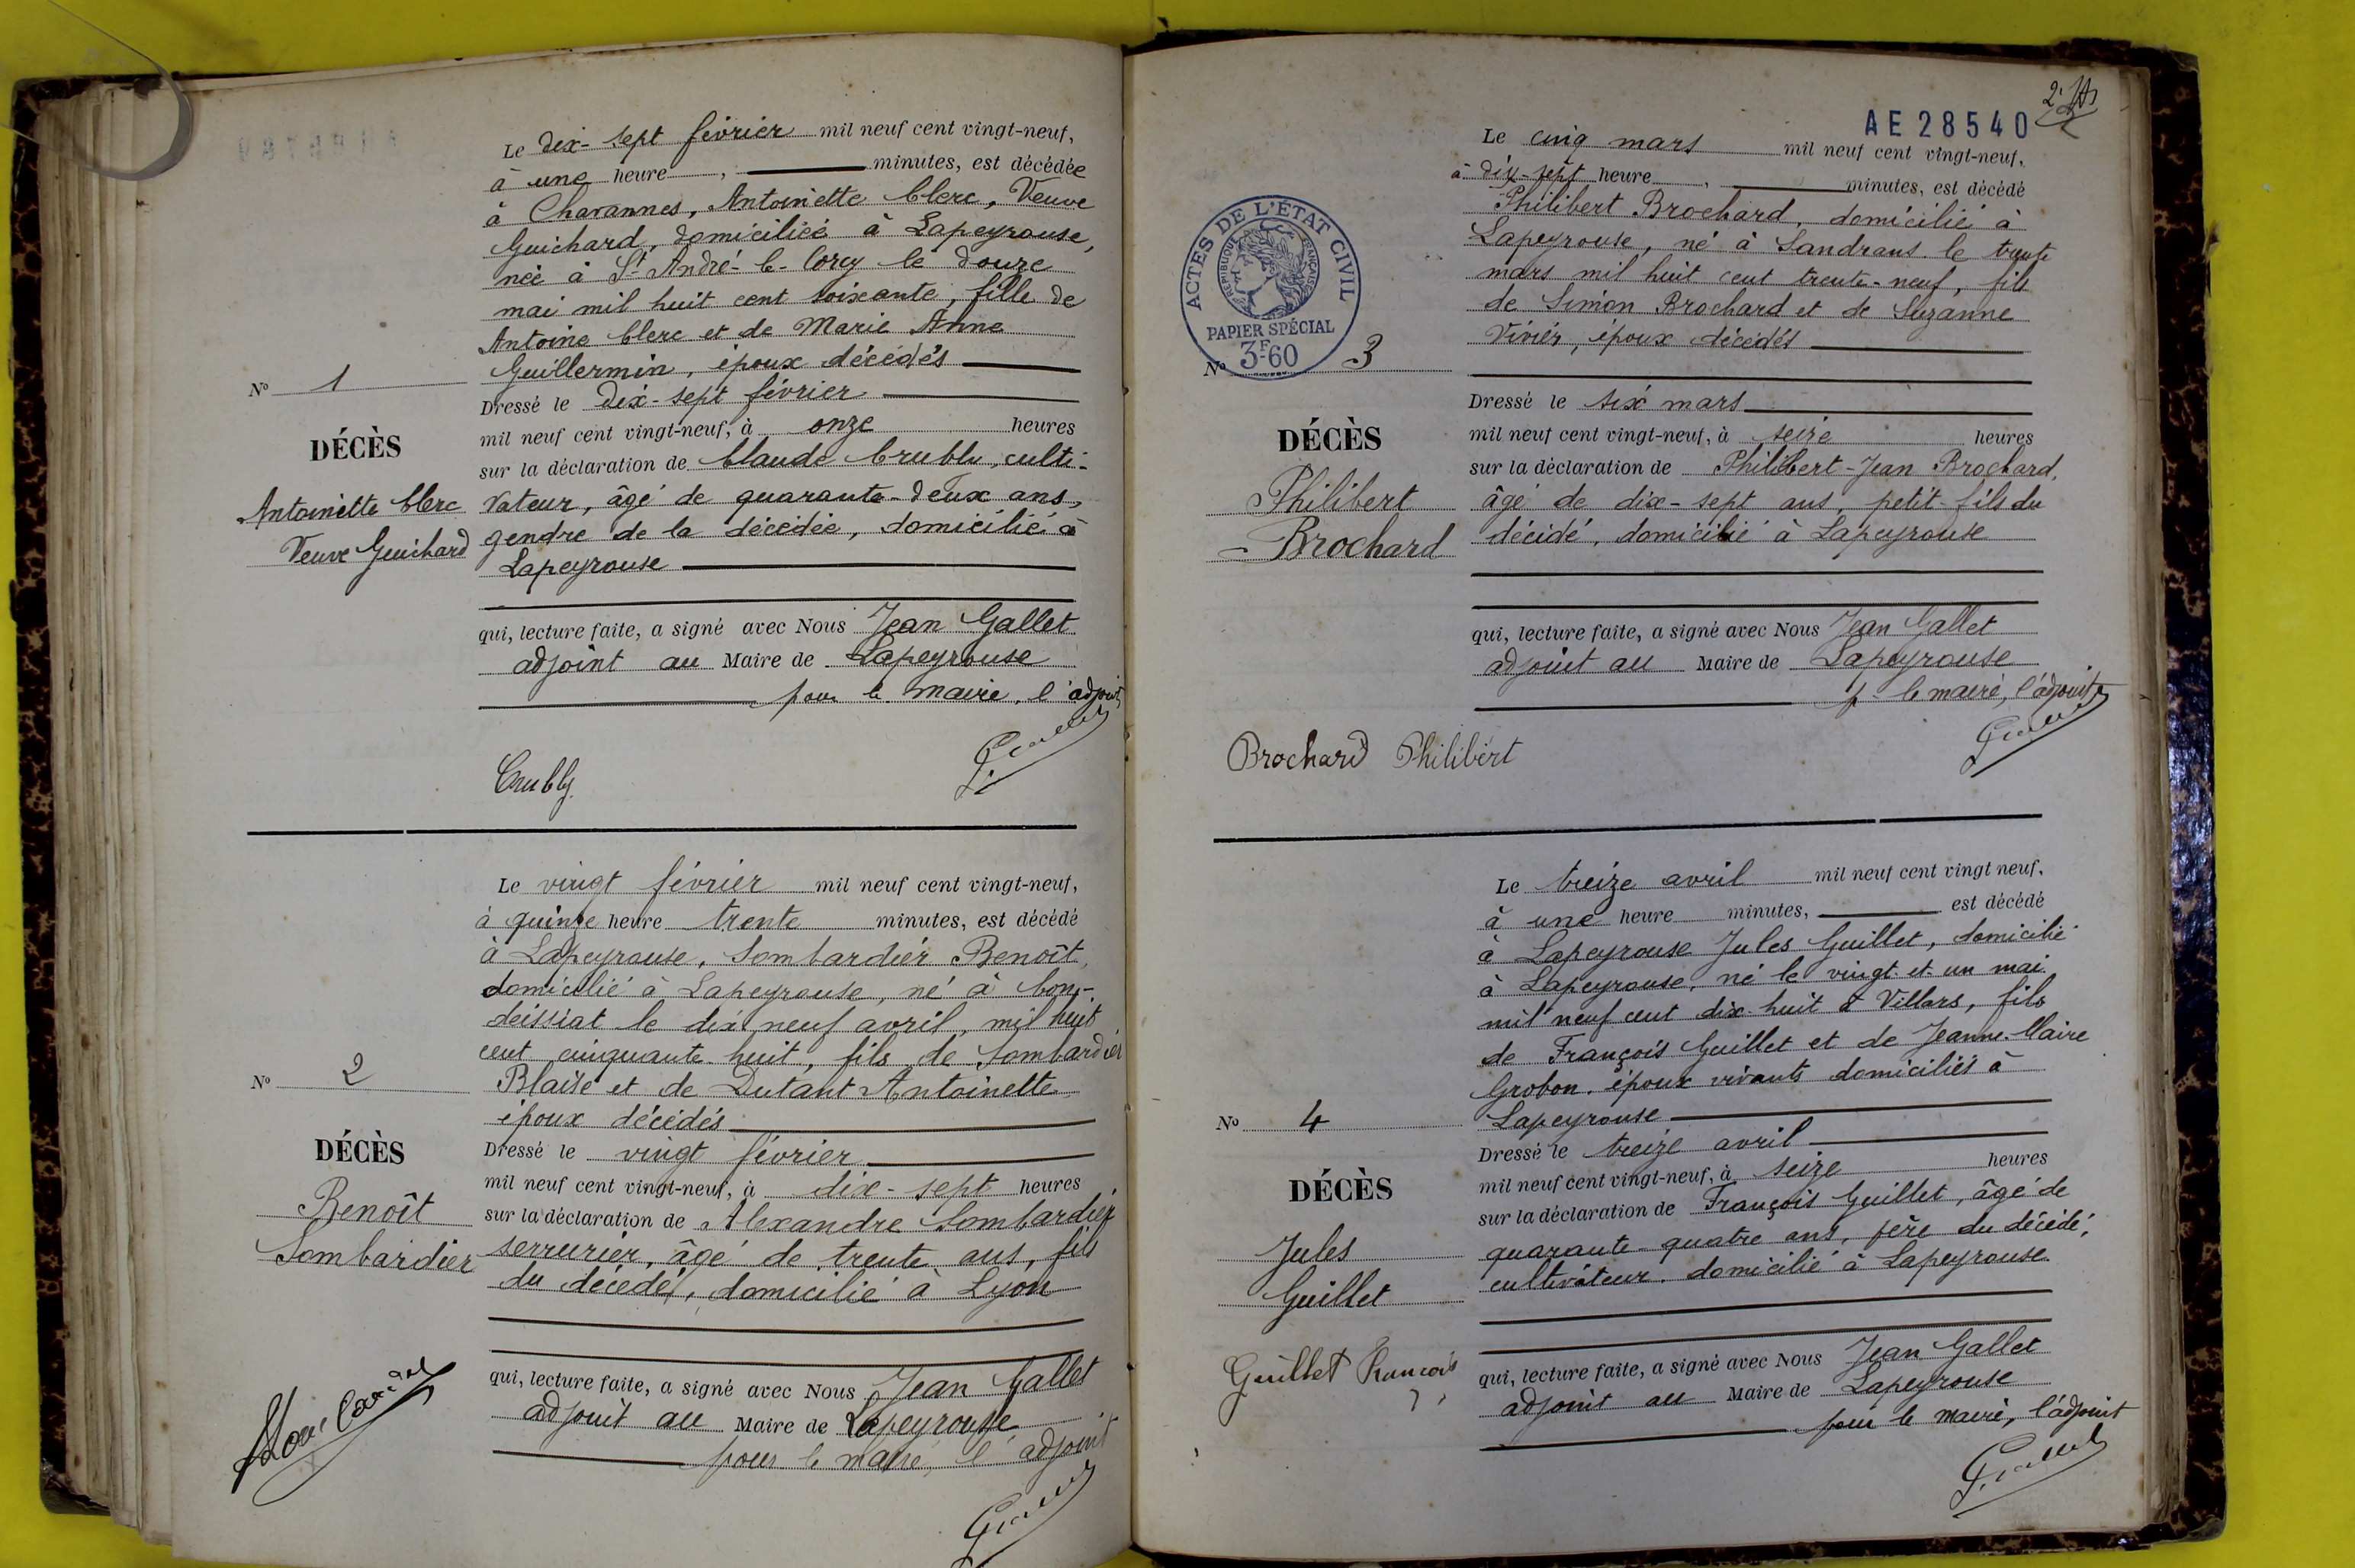 Le dix-sept février mil neuf cent vingt-neuf,
à une heure, minutes, est décédée
à Chavannes, Antoinette Clerc, Veuve
Guichard, domiciliée à Lapeyrouse,
née à St André-le-Corcy le douze
mai mil huit cent soixante, fille de
Antoine Clerc et de Marie Anne
Guillermin, époux décédés
No 1
Dressé le Dix-sept février
mil neuf cent vingt-neuf, à onze heures
DÉCÈS
sur la déclaration de Claude Crubly, culti-
Antoinette Clerc
vateur, âgé de quarante-deux ans,
Veuve Guichard
gendre de la décédée, domicilié à
Lapeyrouse
qui, lecture faite, a signé avec Nous Jean Gallet
adjoint au Maire de Lapeyrouse
pour le maire, l'adjoint
Crubly
Gallet
Le vingt février mil neuf cent vingt-neuf,
à quinze heure trente minutes, est décédé
à Lapeyrouse, Lombardier Benoît,
domicilié à Lapeyrouse, né à Con-
deissiat le dix neuf avril, mil huit
cent cinquante-huit, fils de Lombardier
No 2
Blaise et de Dutant Antoinette
époux décédés
DÉCÈS
Dressé le vingt février
mil neuf cent vingt-neuf, à dix-sept heures
Benoît
sur la déclaration de Alexandre Lombardier
Lombardier
serrurier, âgé de trente ans, fils
du décédé, domicilié à Lyon
qui, lecture faite, a signé avec Nous Jean Gallet
adjoint au Maire de Lapeyrouse
pour le maire, l'adjoint
Gallet
2
AE28540
Le cinq mars mil neuf cent vingt-neuf,
à dix-sept heure, minutes, est décédé
Philibert Brochard, domicilié à
Lapeyrouse, né à Sandrans le trente
mars mil huit cent trente-neuf, fils
de Simon Brochard et de Suzanne
Vivier, époux décédés
ACTES DE L'ÉTAT CIVIL
RÉPUBLIQUE FRANÇAISE
PAPIER SPÉCIAL
3F60
No 3
Dressé le six mars
DÉCÈS
mil neuf cent vingt-neuf, à seize heures
sur la déclaration de Philibert-Jean Brochard,
Philibert
âgé de dix-sept ans, petit-fils du
Brochard
décédé, domicilié à Lapeyrouse
qui, lecture faite, a signé avec Nous Jean Gallet
adjoint au Maire de Lapeyrouse
p. le maire, l'adjoint
Brochard Philibert
Gallet
Le treize avril mil neuf cent vingt neuf,
à une heure minutes, est décédé
à Lapeyrouse Jules Guillet, domicilié
à Lapeyrouse, né le vingt-et-un mai
mil neuf cent dix-huit à Villars, fils
de François Guillet et de Jeanne-Marie
Grobon, époux vivants domiciliés à
No 4
Lapeyrouse
Dressé le treize avril
DÉCÈS
mil neuf cent vingt-neuf, à seize heures
sur la déclaration de François Guillet, âgé de
Jules
quarante-quatre ans, père du décédé,
Guillet
cultivateur, domicilié à Lapeyrouse
qui, lecture faite, a signé avec Nous Jean Gallet
Guillet François
adjoint au Maire de Lapeyrouse
pour le maire, l'adjoint
Gallet